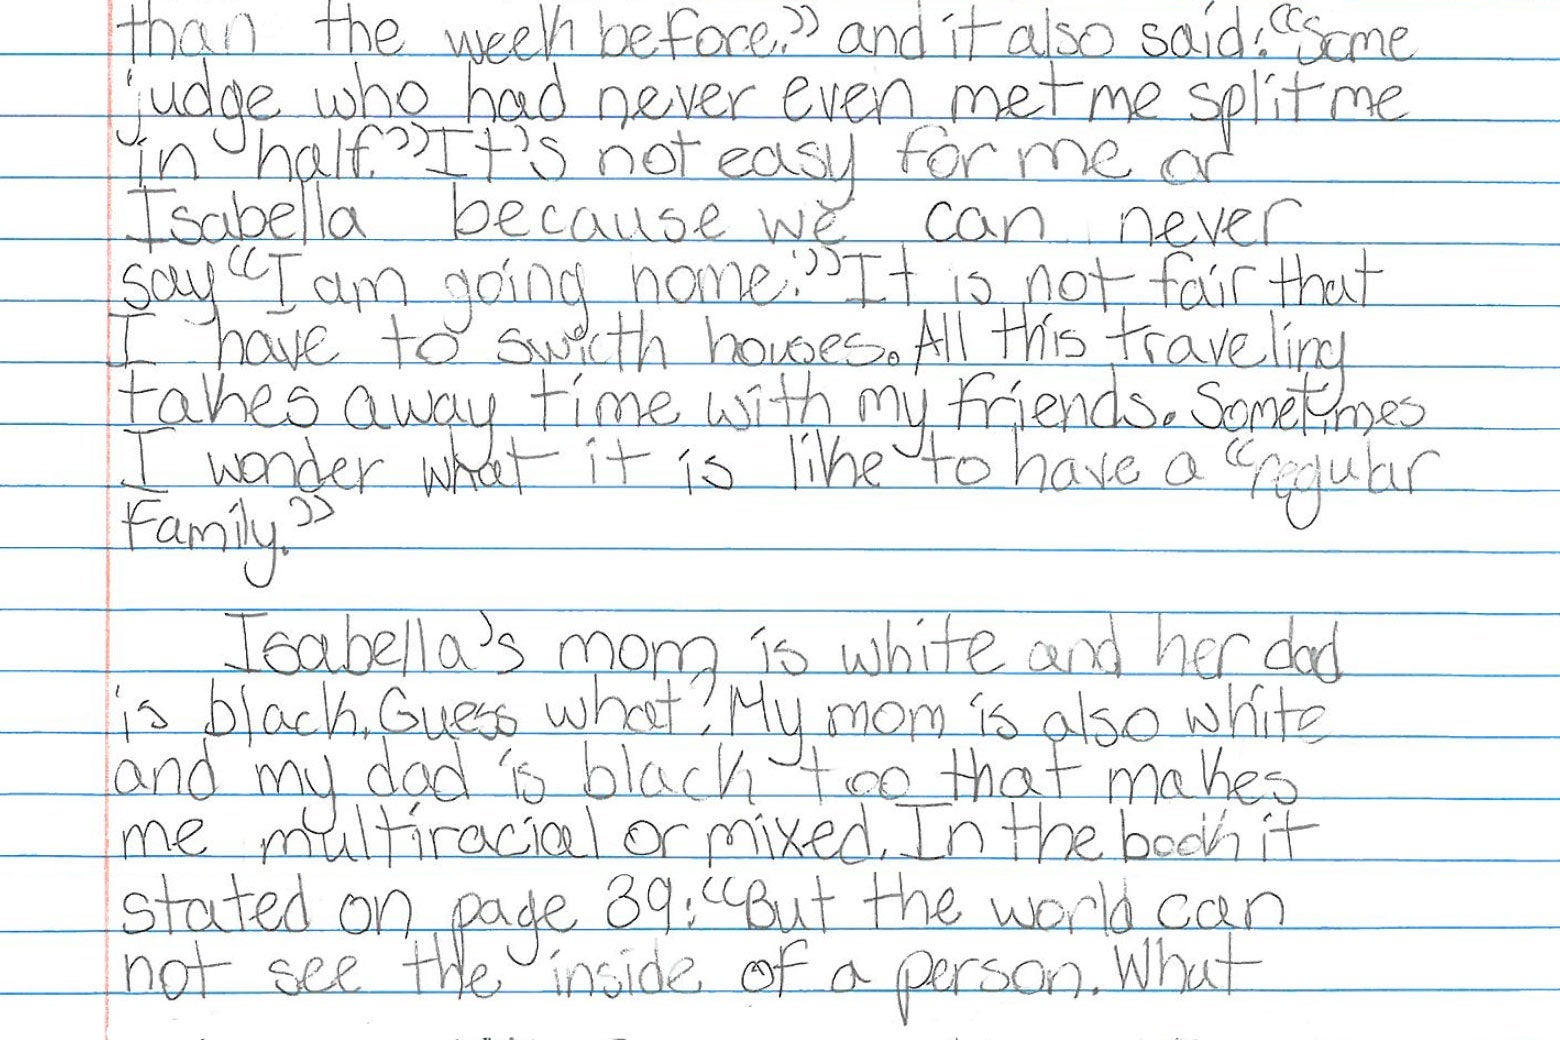 than the week before." and it also said: "Some
judge who had never even met me split me
in half." It's not easy for me or
Isabella because we can never
say "I am going home." It is not fair that
I have to swicth houses. All this traveling
takes away time with my friends. Sometimes
I wonder what it is like to have a "regular
family."
Isabella's mom is white and her dad
is black. Guess what? My mom is also white
and my dad is black too that makes
me multiracial or mixed. In the book it
stated on page 39: "But the world can
not see the inside of a person. What